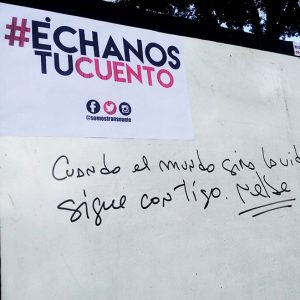 #ÉCHANOS
TUCUENTO
@somostranseunte
Cuando el mundo gira la vid
sigue contigo.